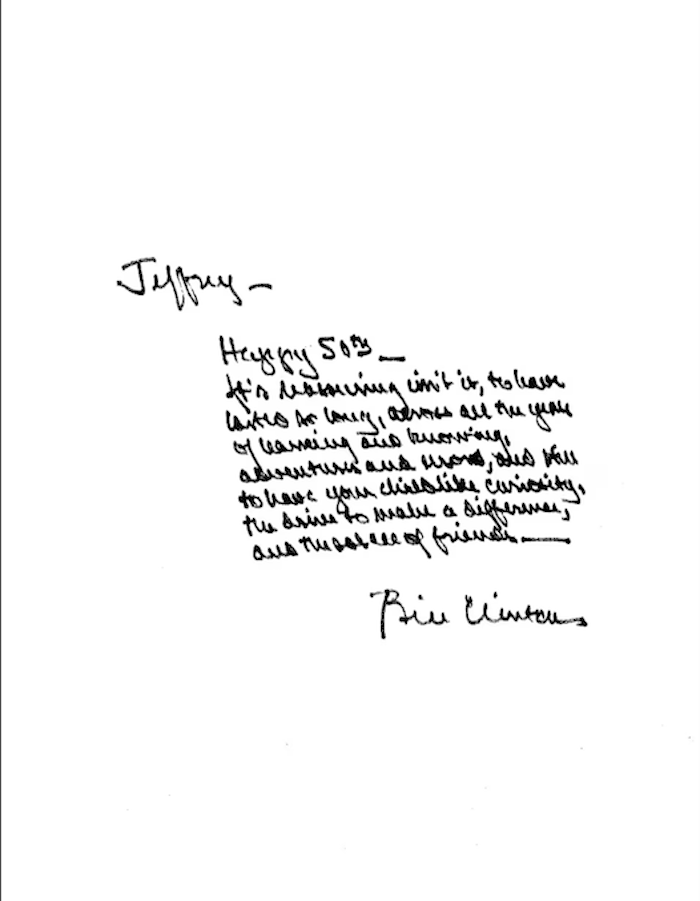 Jeffrey —
Happy 50th —
It's reassuring isn't it, to have
lasted as long, across all the years
of learning and knowing,
adventures and , and
to have your childlike curiosity,
the drive to make a difference,
and the solace of friends. —
Bill Clinton